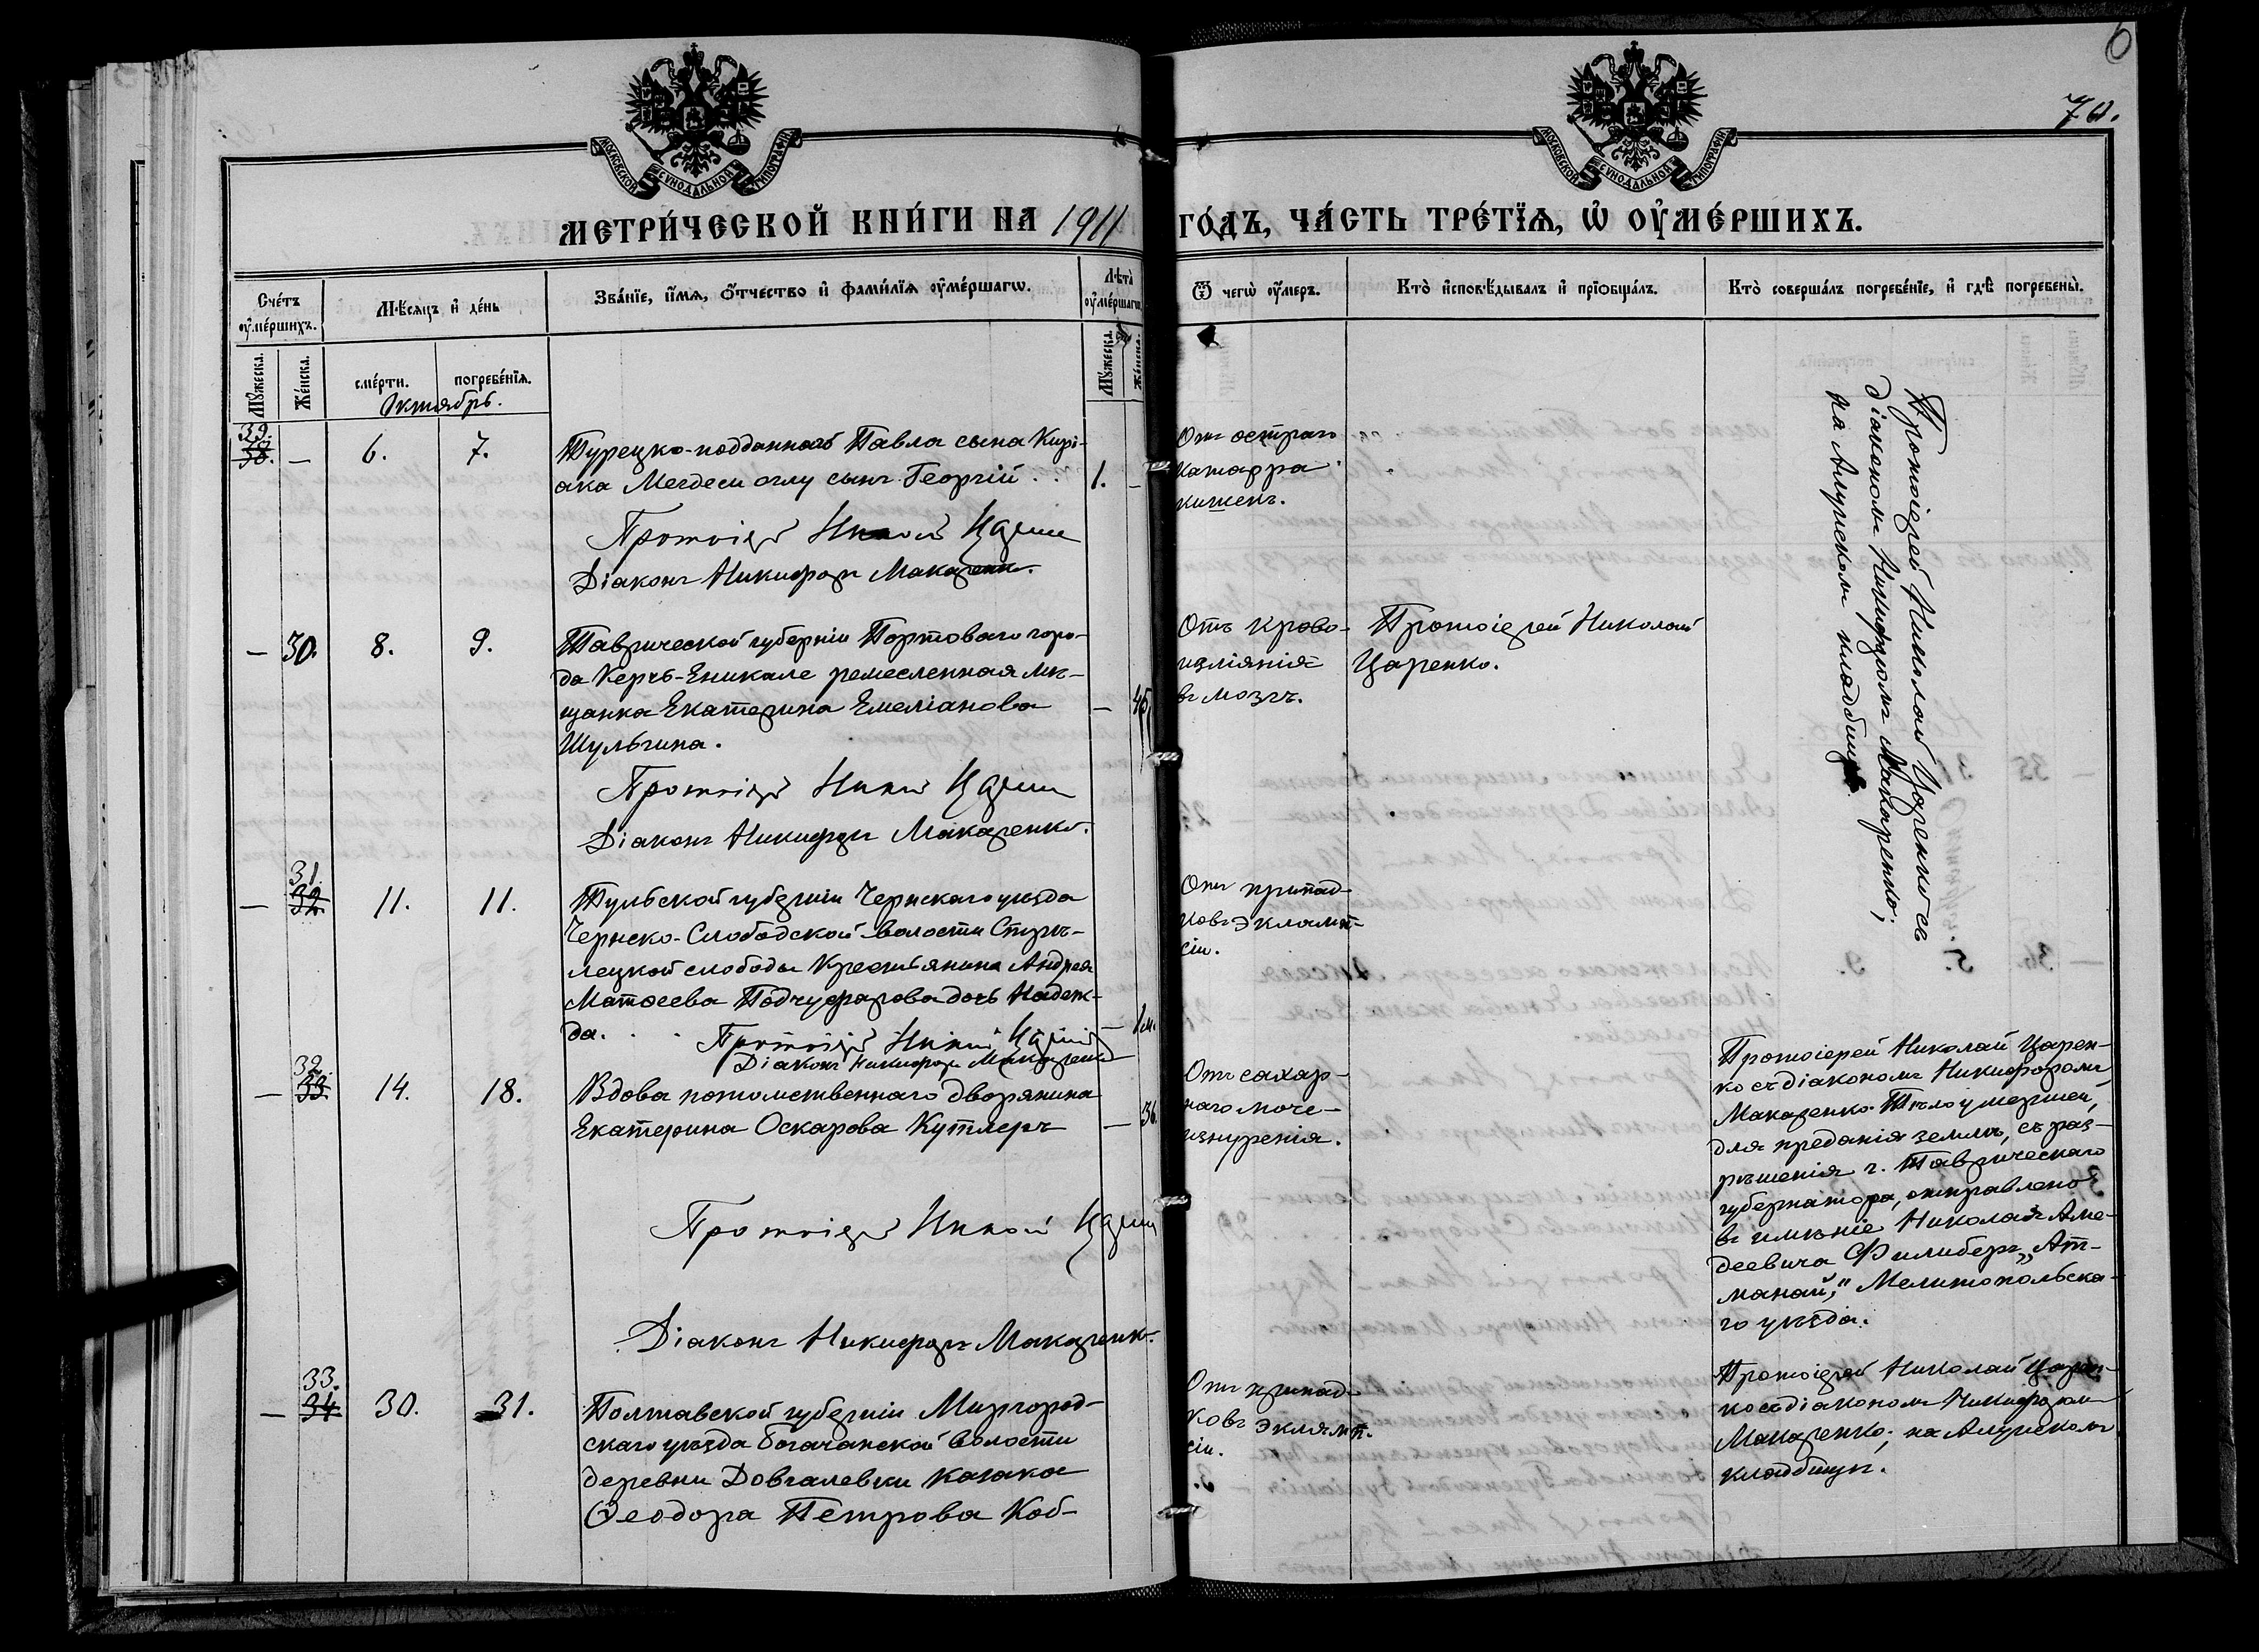 6
70.
МОСКОВСКОЙ СѴНОДАЛЬНОЙ ТИПОГРАФІИ
МОСКОВСКОЙ СѴНОДАЛЬНОЙ ТИПОГРАФІИ
МЕТРИ́ЧЕСКОЙ КНИ́ГИ НА 1911 ГО́ДЪ, ЧА́СТЬ ТРЕ́ТЇѦ, Ѡ҆ ОУ҆МЕ́РШИХЪ.
Сче́тъ оу҆ме́ршихъ.
Мѣ́сяцъ и҆ де́нь
Зва́нїе, и҆́мѧ, о҆́тчество и҆ фами́лїѧ оу҆ме́ршагѡ.
Лѣ́та оу҆ме́ршагѡ.
Ѿ чегѡ̀ оу҆́меръ.
Кто̀ и҆сповѣ́дывалъ и҆ прїѡбща́лъ.
Кто̀ соверша́лъ погребе́нїе, и҆ гдѣ̀ погребены̀.
Мꙋ́жеска.
Же́нска.
сме́рти.
погребе́нїѧ.
Мꙋ́жеска.
Же́нска.
Октябрь.
39.
38. — 6. 7.
Турецко-подданнаго Павла сына Кирі-
ака Мегдеси оглу сынъ Георгій . . 1. —
Протоіерей Николай Царенко
Діаконъ Никифоръ Макаренко.
Отъ остраго
катарра
кишекъ.
Протоіерей Николай Царенко съ
діакономъ Никифоромъ Макаренко;
на Алуписком кладбищѣ.
— 30. 8. 9.
Таврической губерніи Портоваго горо-
да Керчь-Еникале ремесленная мѣ-
щанка Екатерина Емеліанова — 45
Шульгина.
Протоіерей Николай Царенко
Діаконъ Никифоръ Макаренко.
Отъ крово-
изліянія
въ мозгъ.
Протоіерей Николай
Царенко.
31.
— 32. 11. 11.
Тульской губерніи Чернскаго уѣзда
Чернско-Слободской волости Стрѣ-
лецкой слободы Крестьянина Андрея
Матѳеева Подчуфарова дочь Надеж-
да. . . — 1м.
Протоіерей Николай Царенко
Діаконъ Никифоръ Макаренко
Отъ припад-
ковъ эклямп-
сіи.
32.
— 33. 14. 18.
Вдова потомственнаго дворянина
Екатерина Оскарова Кутлеръ — 36.
Протоіерей Николай Царенко
Діаконъ Никифоръ Макаренко.
Отъ сахар-
наго моче-
изнуренія.
Протоіерей Николай Царен-
ко съ діакономъ Никифоромъ
Макаренко. Тѣло умершей,
для преданія землѣ, съ раз-
рѣшенія г. Таврическаго
губернатора, отправлено
въ имѣніе Николая Аме-
деевича Филибертъ „Ат-
манай," Мелитопольска-
го уѣзда.
33.
— 34. 30. 31.
Полтавской губерніи Миргород-
скаго уѣзда Богачанской волости
деревни Довгалевки казака
Ѳеодора Петрова Коб-
Отъ припад-
ковъ эклямп-
сіи.
Протоіерей Николай Царен-
ко съ діакономъ Никифоромъ
Макаренко; на Алупскомъ
кладбищѣ.